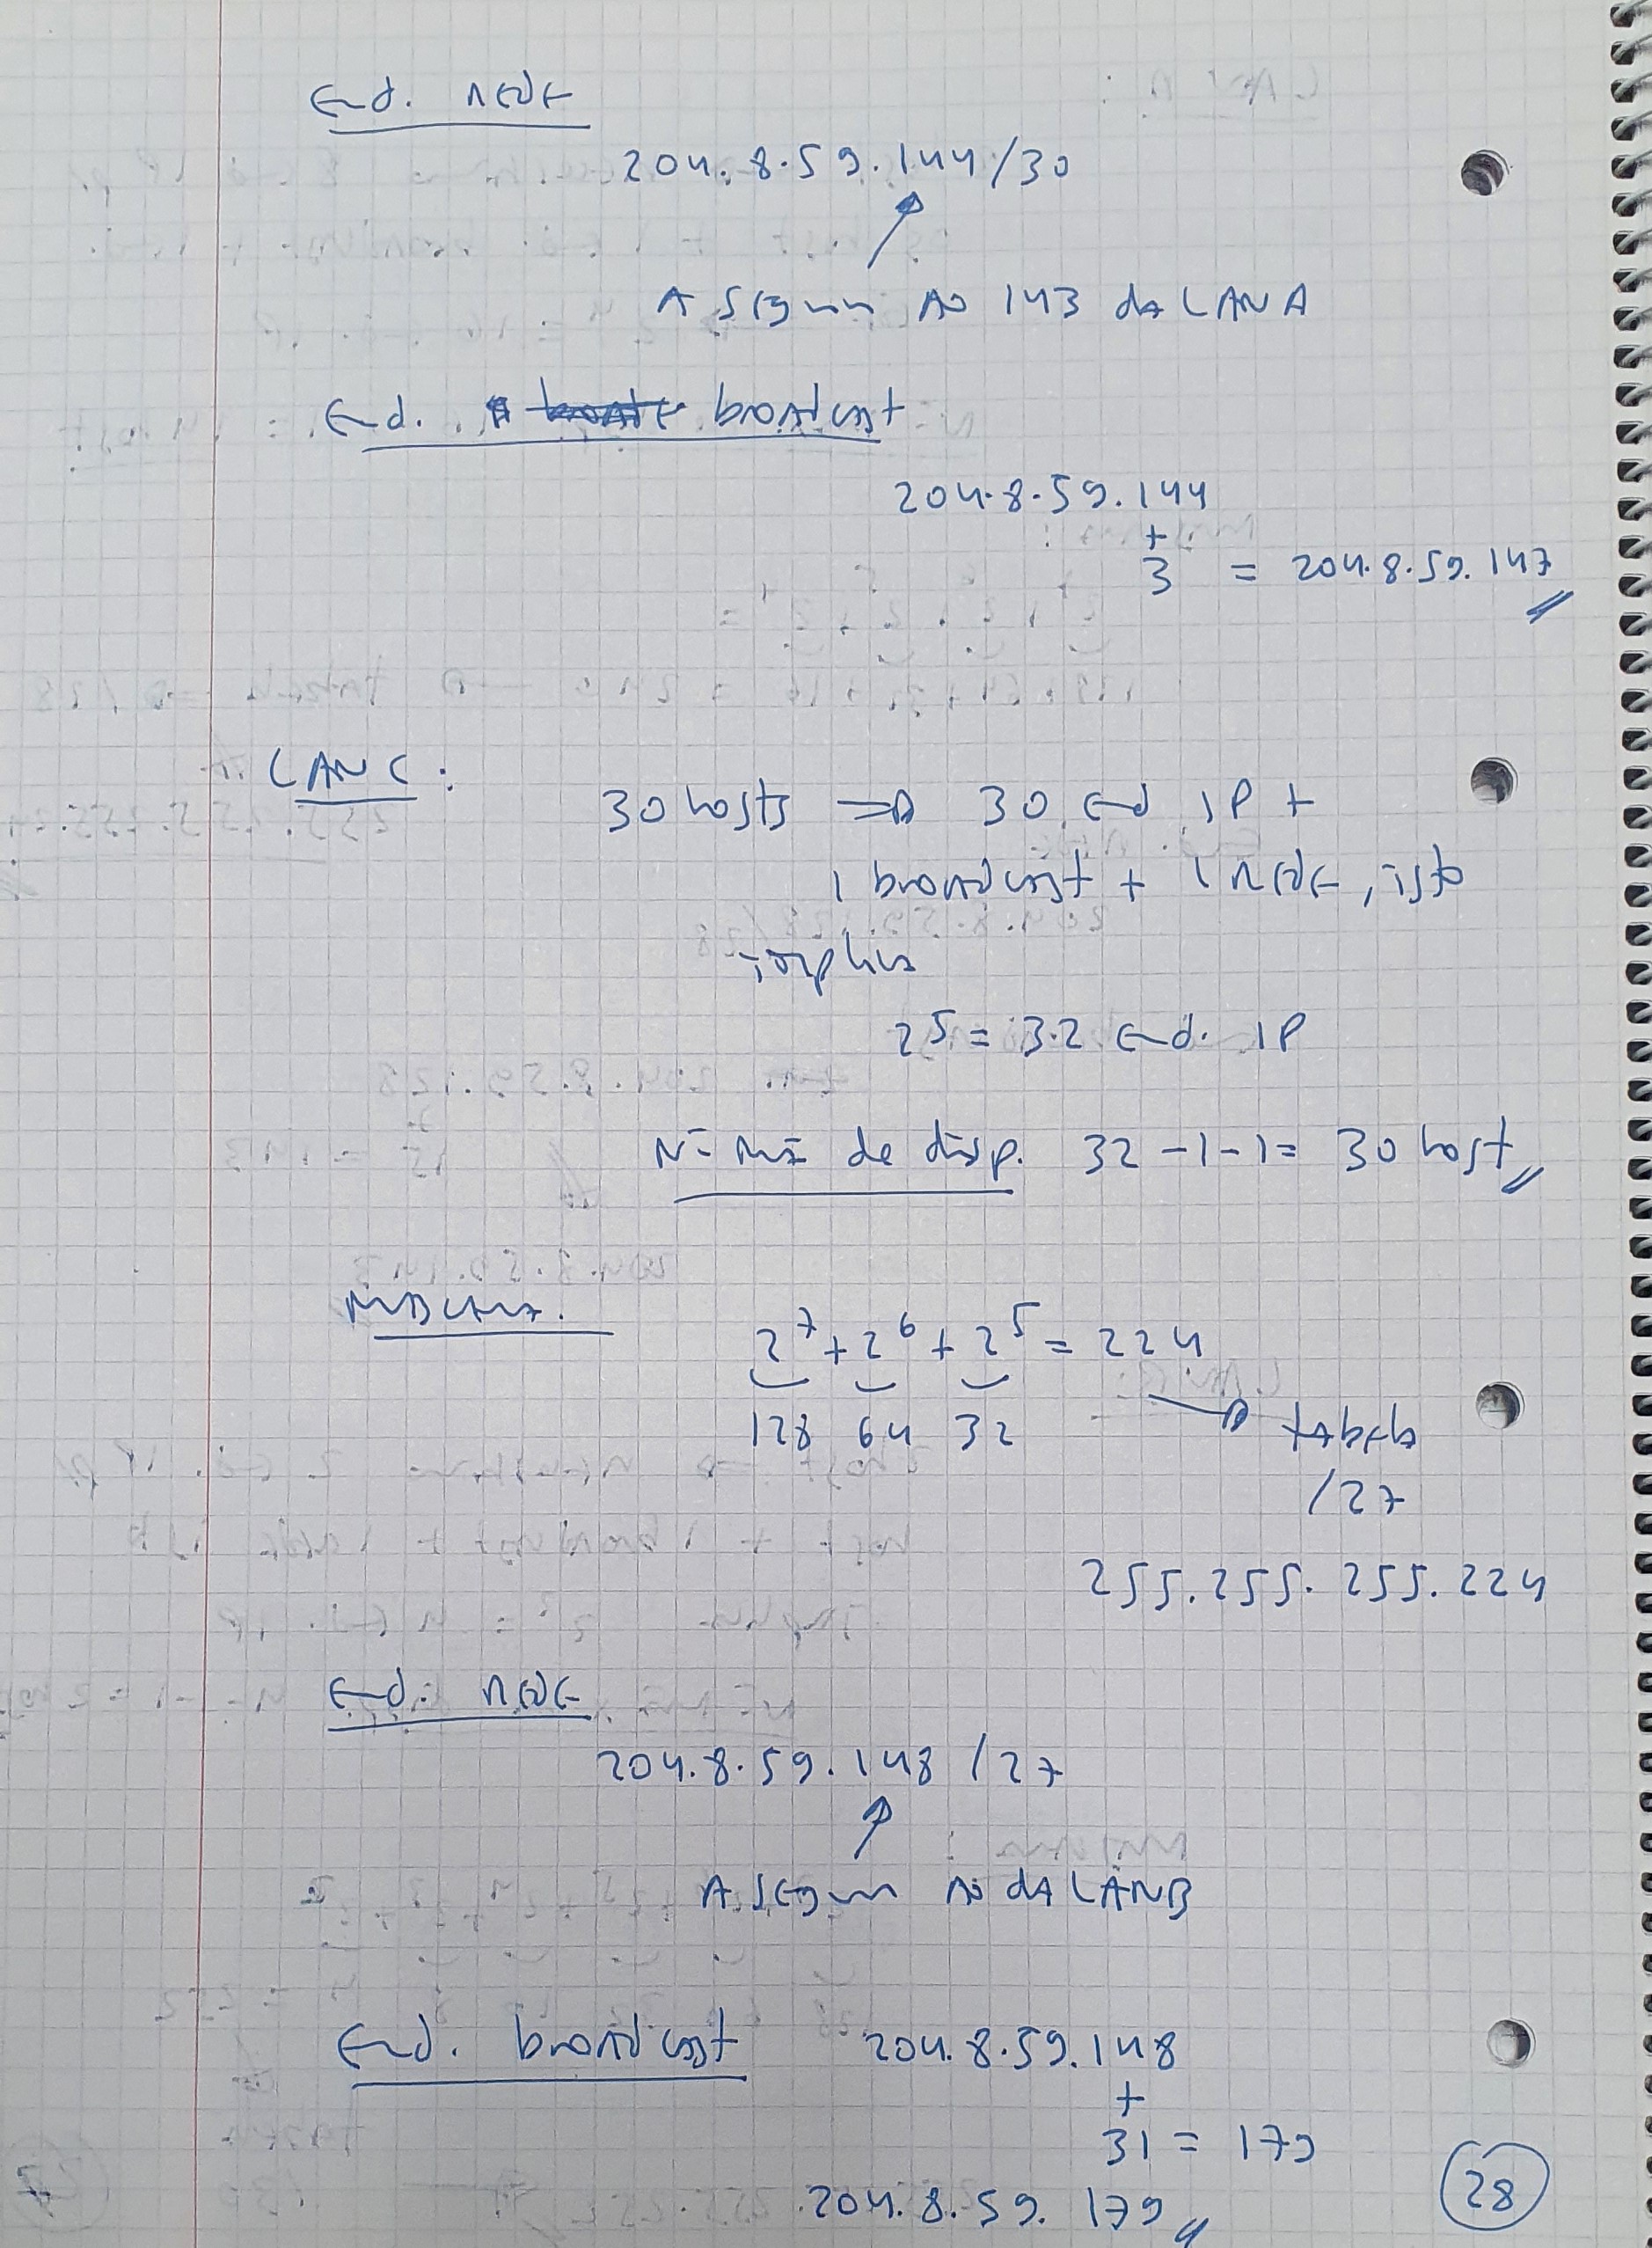 End. rede
204.8.59.144/30
A seguir ao 143 da LAN A
End. broadcast
204.8.59.144
+
3 = 204.8.59.147
LAN C:
30 hosts => 30 end IP +
1 broadcast + 1 rede, isto
implica
2^5 = 32 end. IP
Nº má de disp. 32 - 1 - 1 = 30 host
Máscara.
2^7 + 2^6 + 2^5 = 224
128 64 32
tabela
/27
255.255.255.224
End. rede
204.8.59.148 /27
A seguir ao da LAN B
End. broadcast 204.8.59.148
+
31 = 179
204.8.59.179
28